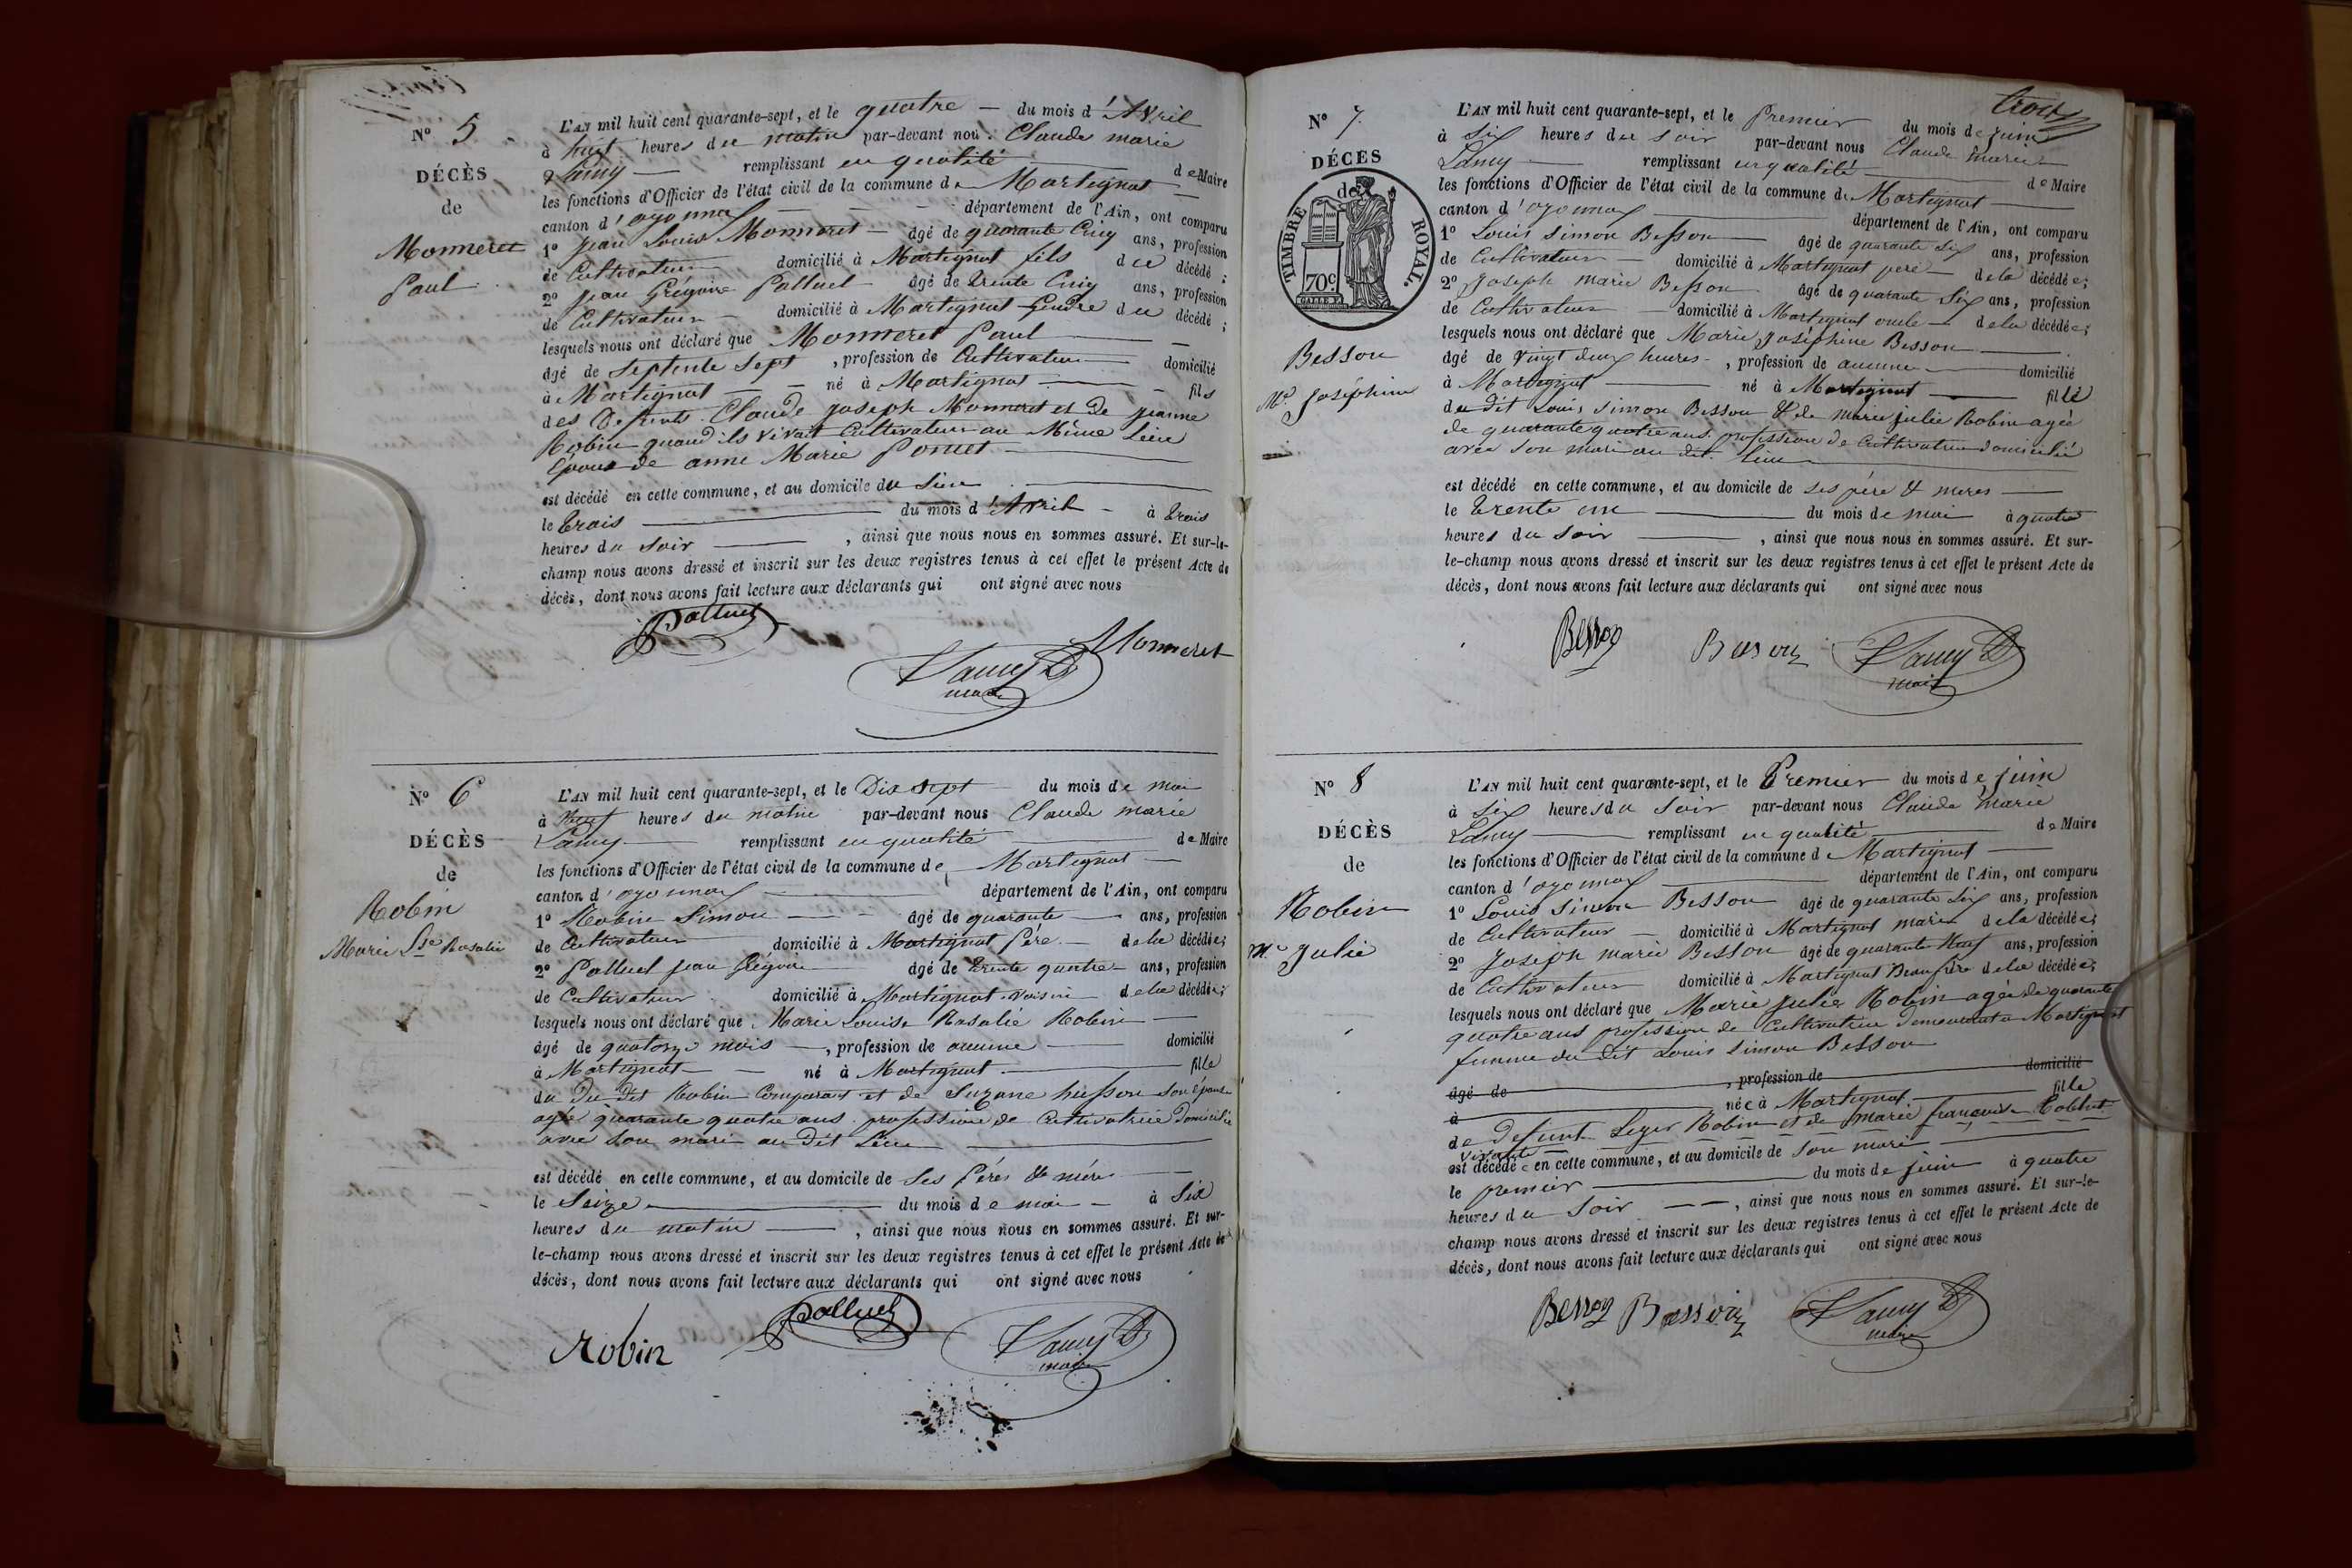 N° 5
DÉCÈS
de
Monneret
Paul
L'AN mil huit cent quarante-sept, et le quatre du mois d'Avril
à huit heures du matin par-devant nous Claude marie
Lamy remplissant en qualité de Maire
les fonctions d'Officier de l'état civil de la commune de Martignat
canton d'oyonnax département de l'Ain, ont comparu
1° Jean Louis Monneret âgé de quarante Cinq ans, profession
de Cultivateur domicilié à Martignat fils du décédé ;
2° Jean Grégoire Palluel âgé de trente Cinq ans, profession
de Cultivateur domicilié à Martignat Gendre du décédé ;
lesquels nous ont déclaré que Monneret Paul
âgé de septente sept , profession de Cultivateur domicilié
à Martignat né à Martignat fils
des Defunts Claude joseph Monneret et de jeanne
Robin quand ils vivait Cultivateur au Même Lieu
Epoux de anne Marie Poncet
est décédé en cette commune, et au domicile du Sien
le trois du mois d'Avril à trois
heures du soir , ainsi que nous nous en sommes assuré. Et sur-le-
champ nous avons dressé et inscrit sur les deux registres tenus à cet effet le présent Acte de
décès, dont nous avons fait lecture aux déclarants qui ont signé avec nous
Palluel
Monneret
Lamy
maire
N° 6
DÉCÈS
de
Robin
Marie Lse Rosalie
L'AN mil huit cent quarante-sept, et le Dix sept du mois de mai
à neuf heures du matin par-devant nous Claude marie
Lamy remplissant en qualité de Maire
les fonctions d'Officier de l'état civil de la commune de Martignat
canton d'oyonnax département de l'Ain, ont comparu
1° Robin Simon âgé de quarante ans, profession
de Cultivateur domicilié à Martignat Père de la décédée ;
2° Palluel jean Grégoire âgé de trente quatre ans, profession
de Cultivateur domicilié à Martignat voisin de la décédée ;
lesquels nous ont déclaré que Marie Louise Rosalie Robin
âgé de quatorze mois , profession de aucune domicilié
à Martignat né à Martignat fille
du du dit Robin Comparant et de Suzanne husson son épouse
agée quarante quatre ans profession de Cultivatrice Domiciliée
avec son mari au Dit Lieu
est décédé en cette commune, et au domicile de Ses Pére & mére
le Seize du mois de mai à Six
heures du matin , ainsi que nous nous en sommes assuré. Et sur-
le-champ nous avons dressé et inscrit sur les deux registres tenus à cet effet le présent Acte de
décès, dont nous avons fait lecture aux déclarants qui ont signé avec nous
Robin
Palluel
Lamy
maire
trois
N° 7.
DÉCÈS
de
TIMBRE ROYAL
70c.
Besson
Mie Joséphine
L'AN mil huit cent quarante-sept, et le Premier du mois de juin
à six heures du soir par-devant nous Claude marie
Lamy remplissant en qualité de Maire
les fonctions d'Officier de l'état civil de la commune de Martignat
canton d'oyonnax département de l'Ain, ont comparu
1° Louis simon Besson âgé de quarante six ans, profession
de Cultivateur domicilié à Martignat pere de la décédée ;
2° Joseph marie Besson âgé de quarante six ans, profession
de Cultivateur domicilié à Martignat oncle de la décédée ;
lesquels nous ont déclaré que Marie Joséphine Besson
âgé de vingt deux heures , profession de aucune domicilié
à Martignat né à Martignat fille
du dit Louis simon Besson & de marie julie Robin agée
de quarante quatre ans profession de Cultivatrice domiciliée
avec son mari au dit lieu
est décédé en cette commune, et au domicile de ses père & meres
le trente un du mois de mai à quatre
heures du soir , ainsi que nous nous en sommes assuré. Et sur-
le-champ nous avons dressé et inscrit sur les deux registres tenus à cet effet le présent Acte de
décès, dont nous avons fait lecture aux déclarants qui ont signé avec nous
Besson Besson Lamy
maire
N° 8
DÉCÈS
de
Robin
Mie Julie
L'AN mil huit cent quarante-sept, et le Premier du mois de juin
à six heures du soir par-devant nous Claude marie
Lamy remplissant en qualité de Maire
les fonctions d'Officier de l'état civil de la commune de Martignat
canton d'oyonnax département de l'Ain, ont comparu
1° Louis simon Besson âgé de quarante six ans, profession
de Cultivateur domicilié à Martignat marie de la décédée ;
2° Joseph marie Besson âgé de quarante Neuf ans, profession
de Cultivateur domicilié à Martignat Beau frère de la décédée ;
lesquels nous ont déclaré que Marie Julie Robin agée de quarante
quatre ans profession de Cultivatrice demeurant a Martignat
femme du dit Louis simon Besson
âgé de , profession de domicilié
à née à Martignat fille
de Defunt Leger Robin et de marie françoise
vivante
est décédée en cette commune, et au domicile de son mari
le premier du mois de juin à quatre
heures du soir , ainsi que nous nous en sommes assuré. Et sur-le-
champ nous avons dressé et inscrit sur les deux registres tenus à cet effet le présent Acte de
décès, dont nous avons fait lecture aux déclarants qui ont signé avec nous
Besson Besson Lamy
maire